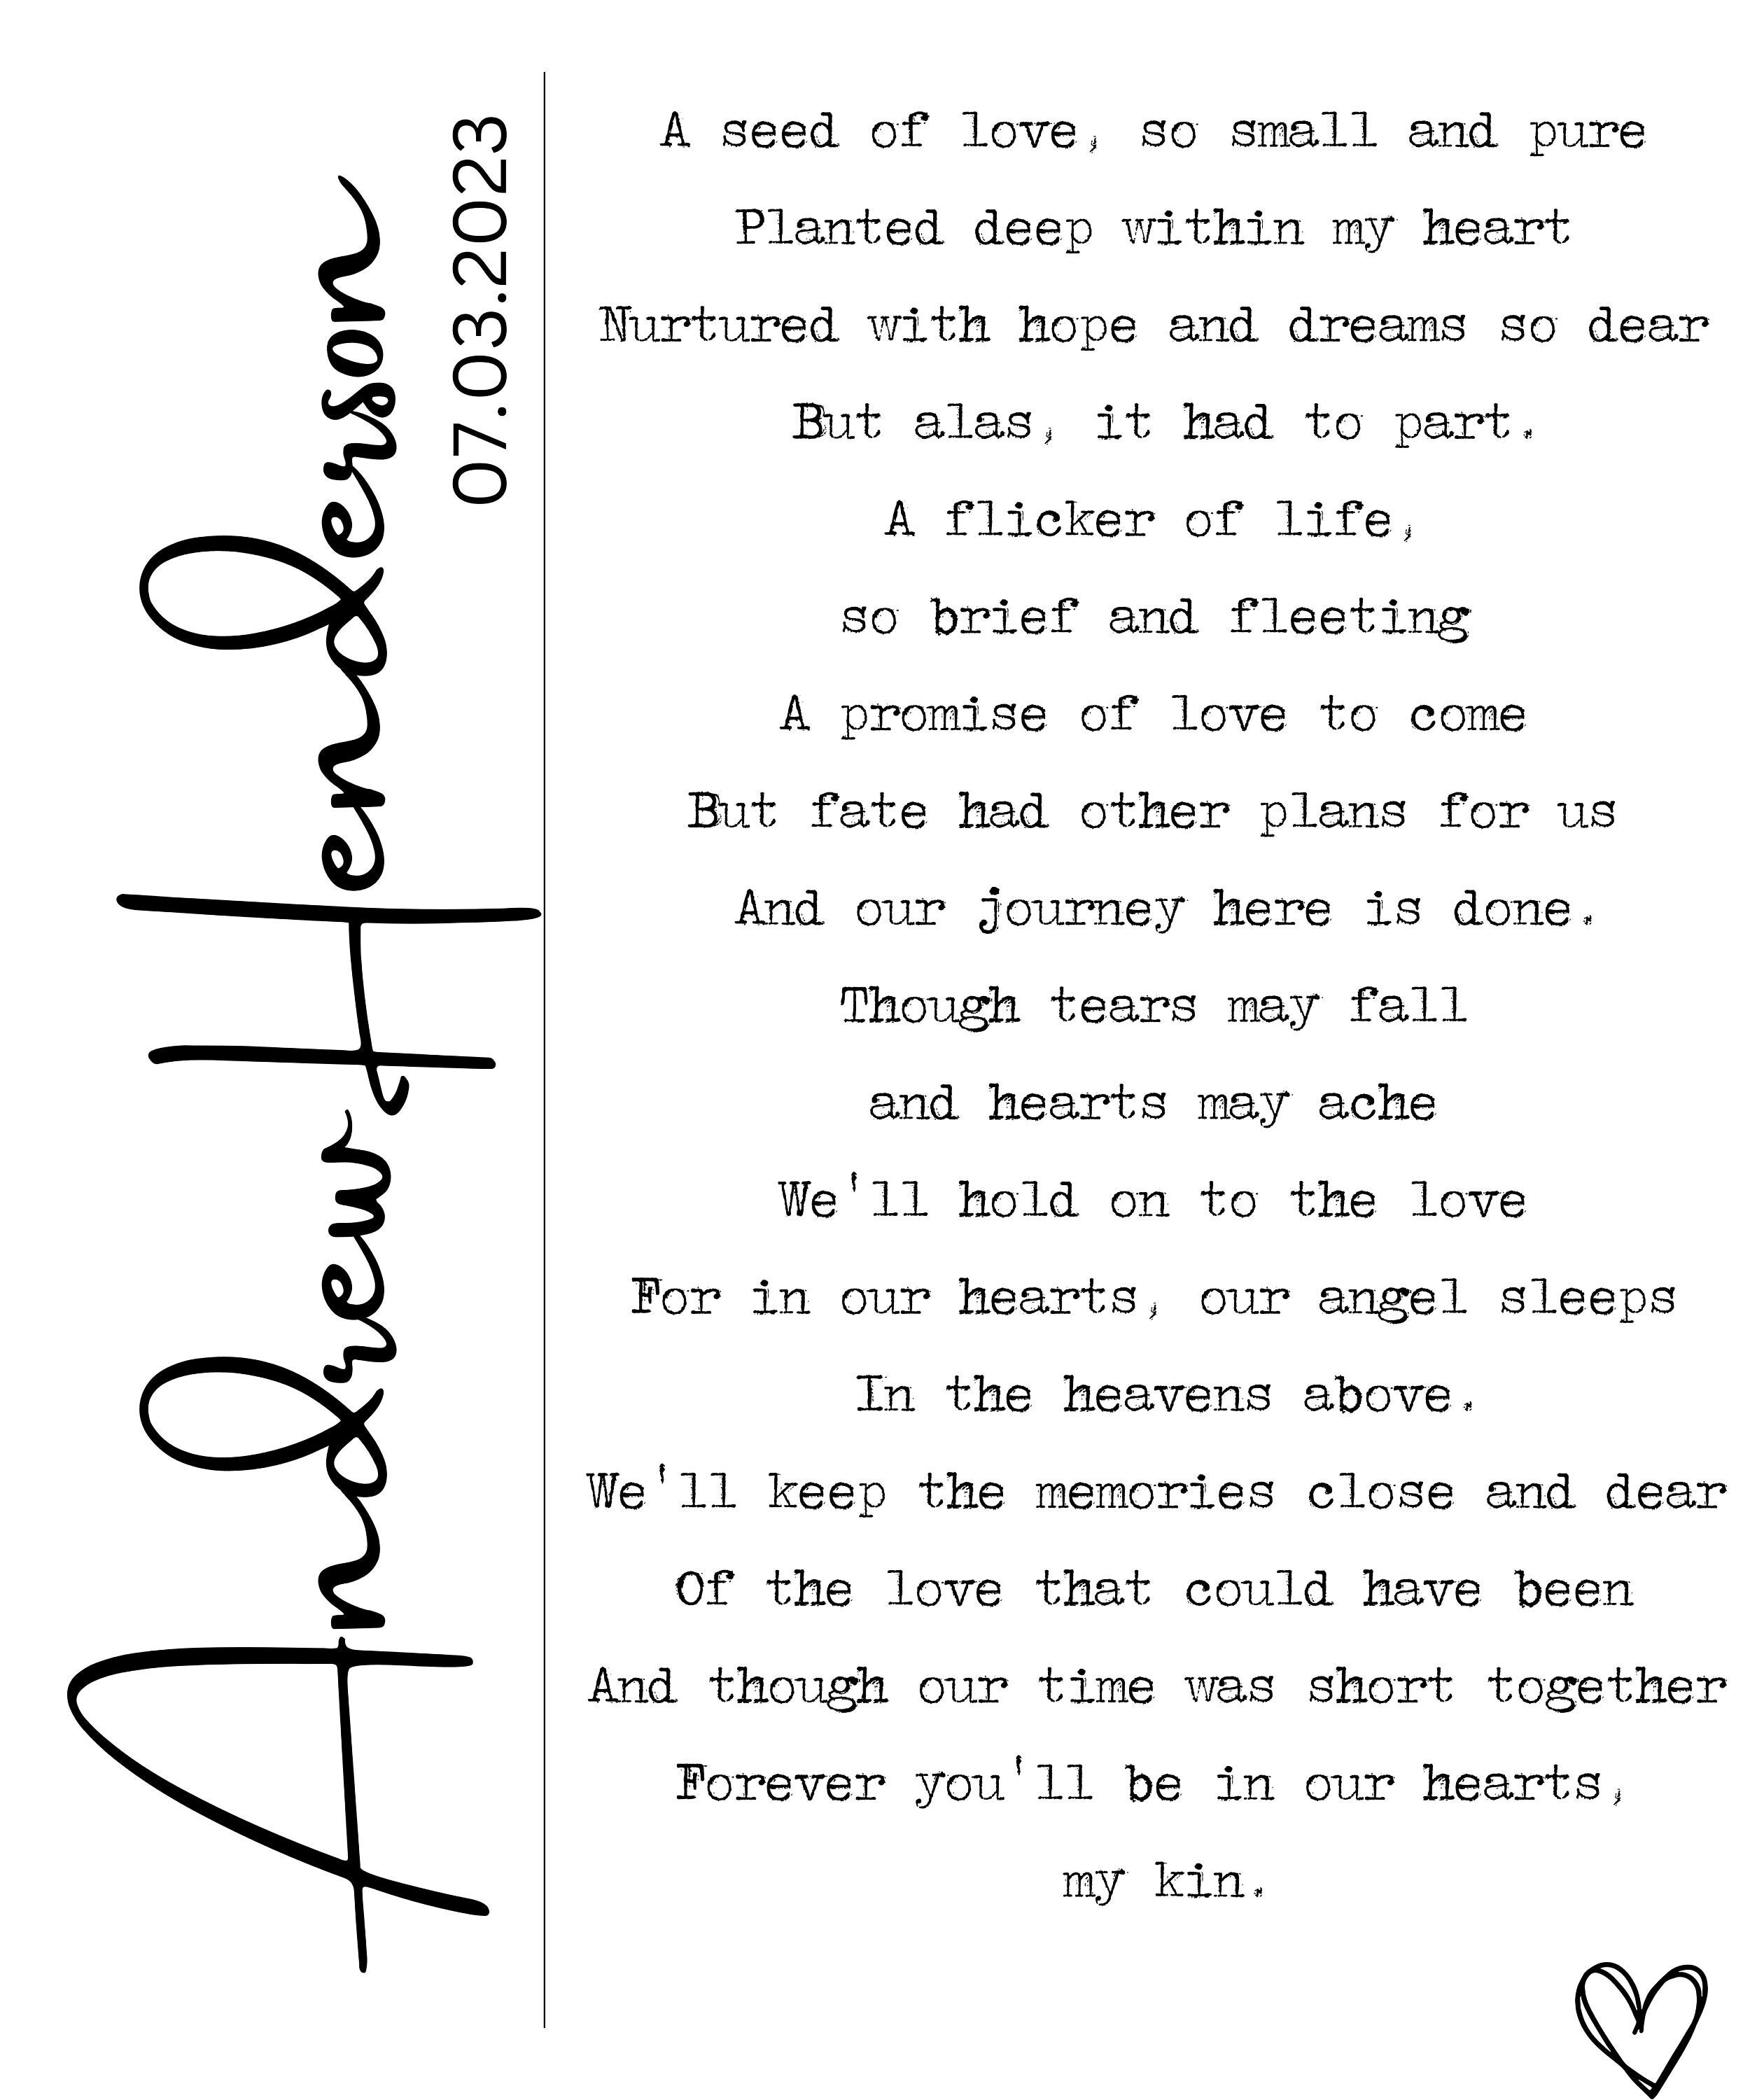 Andrew Henderson
07.03.2023
A seed of love, so small and pure
Planted deep within my heart
Nurtured with hope and dreams so dear
But alas, it had to part.
A flicker of life,
so brief and fleeting
A promise of love to come
But fate had other plans for us
And our journey here is done.
Though tears may fall
and hearts may ache
We'll hold on to the love
For in our hearts, our angel sleeps
In the heavens above.
We'll keep the memories close and dear
Of the love that could have been
And though our time was short together
Forever you'll be in our hearts,
my kin.